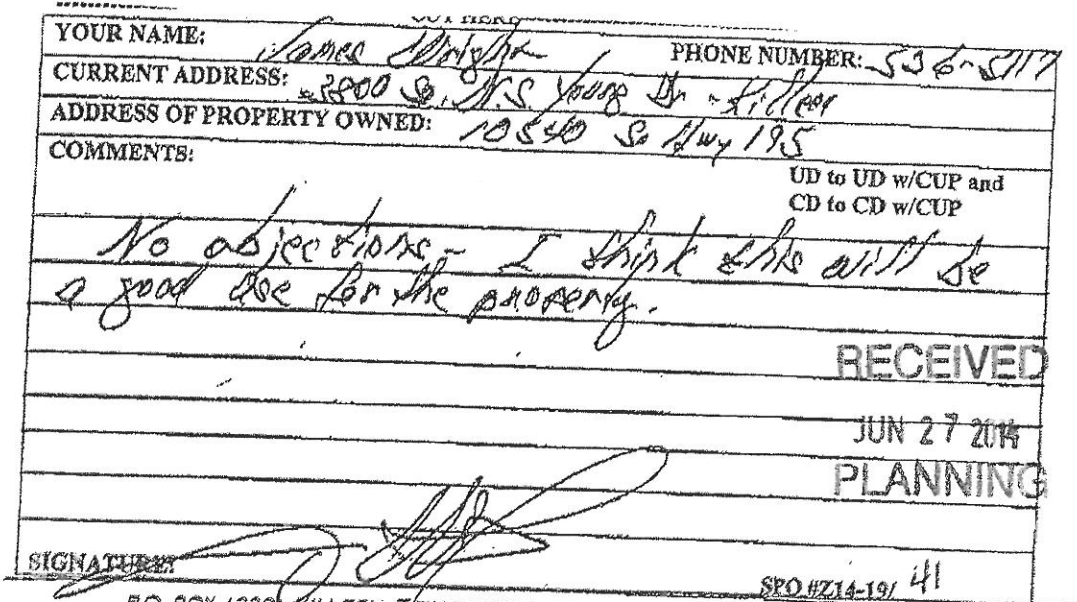 CUT HERE
YOUR NAME: James Wright PHONE NUMBER: 536-5117
CURRENT ADDRESS: 3800 So. W.S. Young Dr - Killeen
ADDRESS OF PROPERTY OWNED: 10540 So Hwy 195
COMMENTS:
UD to UD w/CUP and
CD to CD w/CUP
No objections - I think this will be
a good use for the property.
RECEIVED
JUN 27 2014
PLANNING
SIGNATURE:
SPO #Z14-19/ 41
P.O. BOX